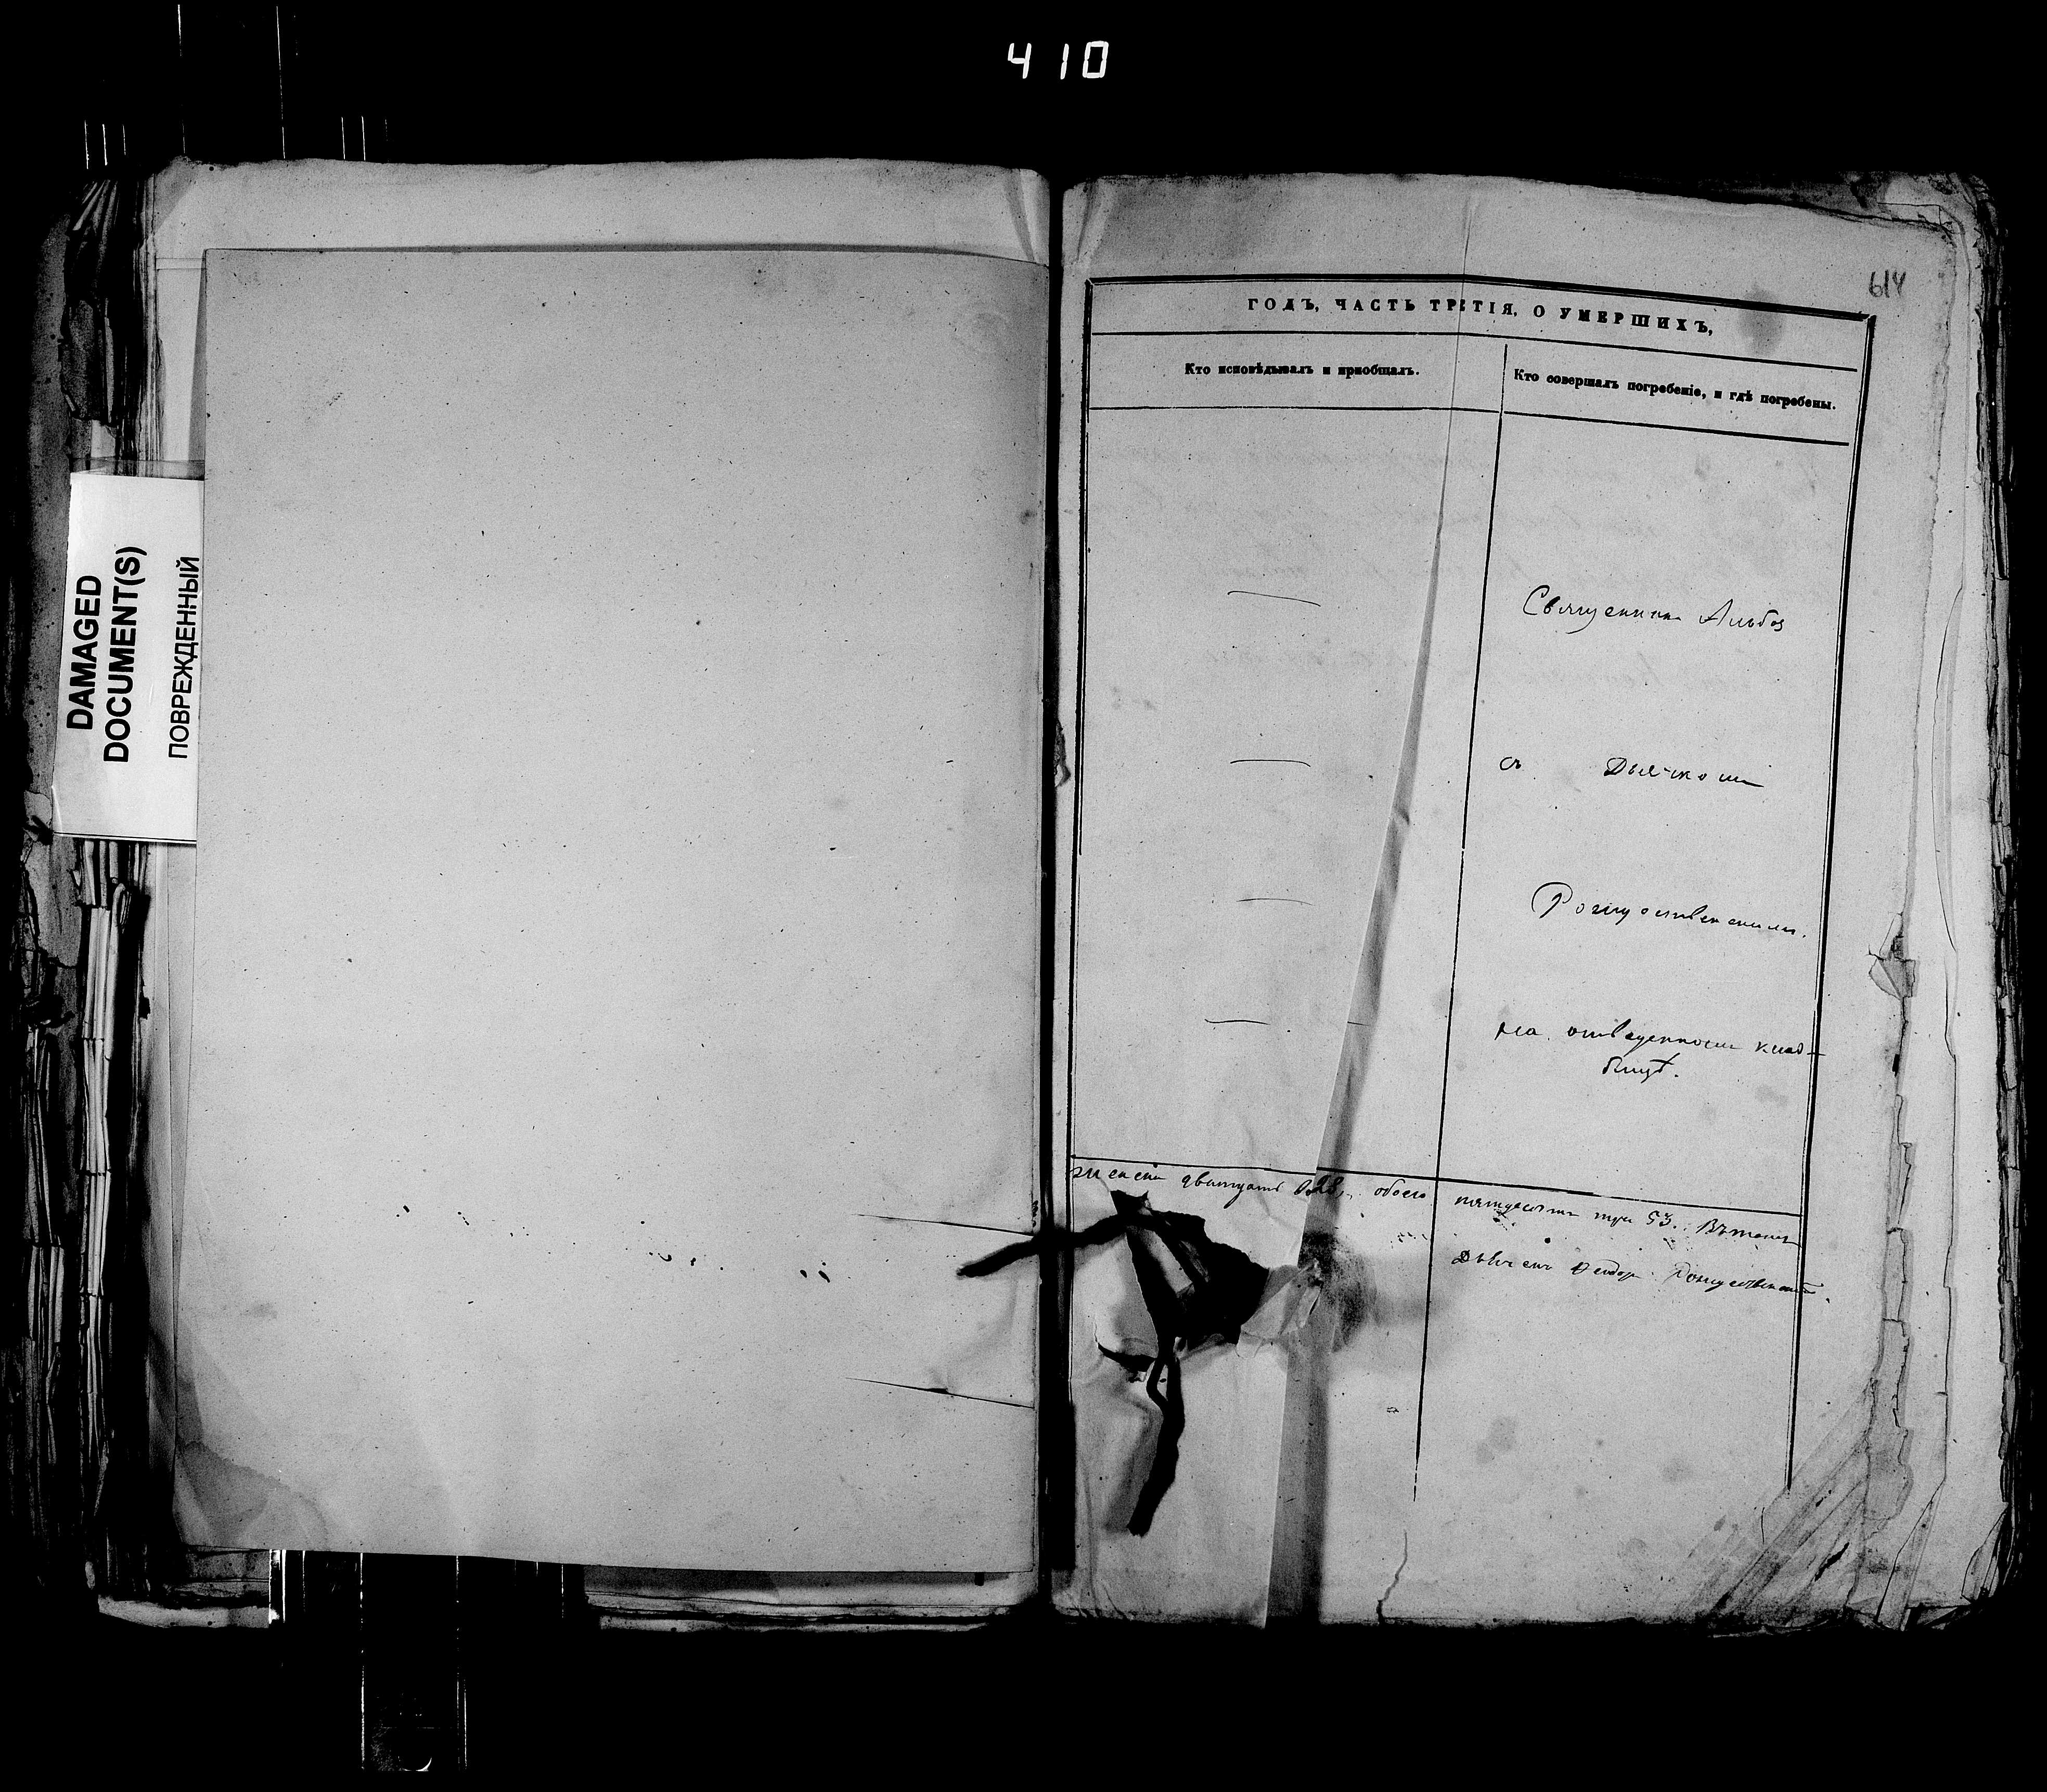 410
DAMAGED
DOCUMENT(S)
ПОВРЕЖДЕННЫЙ
614
ГОДЪ, ЧАСТЬ ТРЕТІЯ, О УМЕРШИХЪ,
Кто исповѣдывалъ и пріобщалъ.
Кто совершалъ погребеніе, и гдѣ погребены.
Священникъ Альбов
съ Дьячкомъ
Рождественскимъ.
на отведенномъ клад-
бищѣ.
женска дватцать 28, обоего пятьдесятъ три 53.
Дьячекъ Ѳеодоръ Рождественскій.